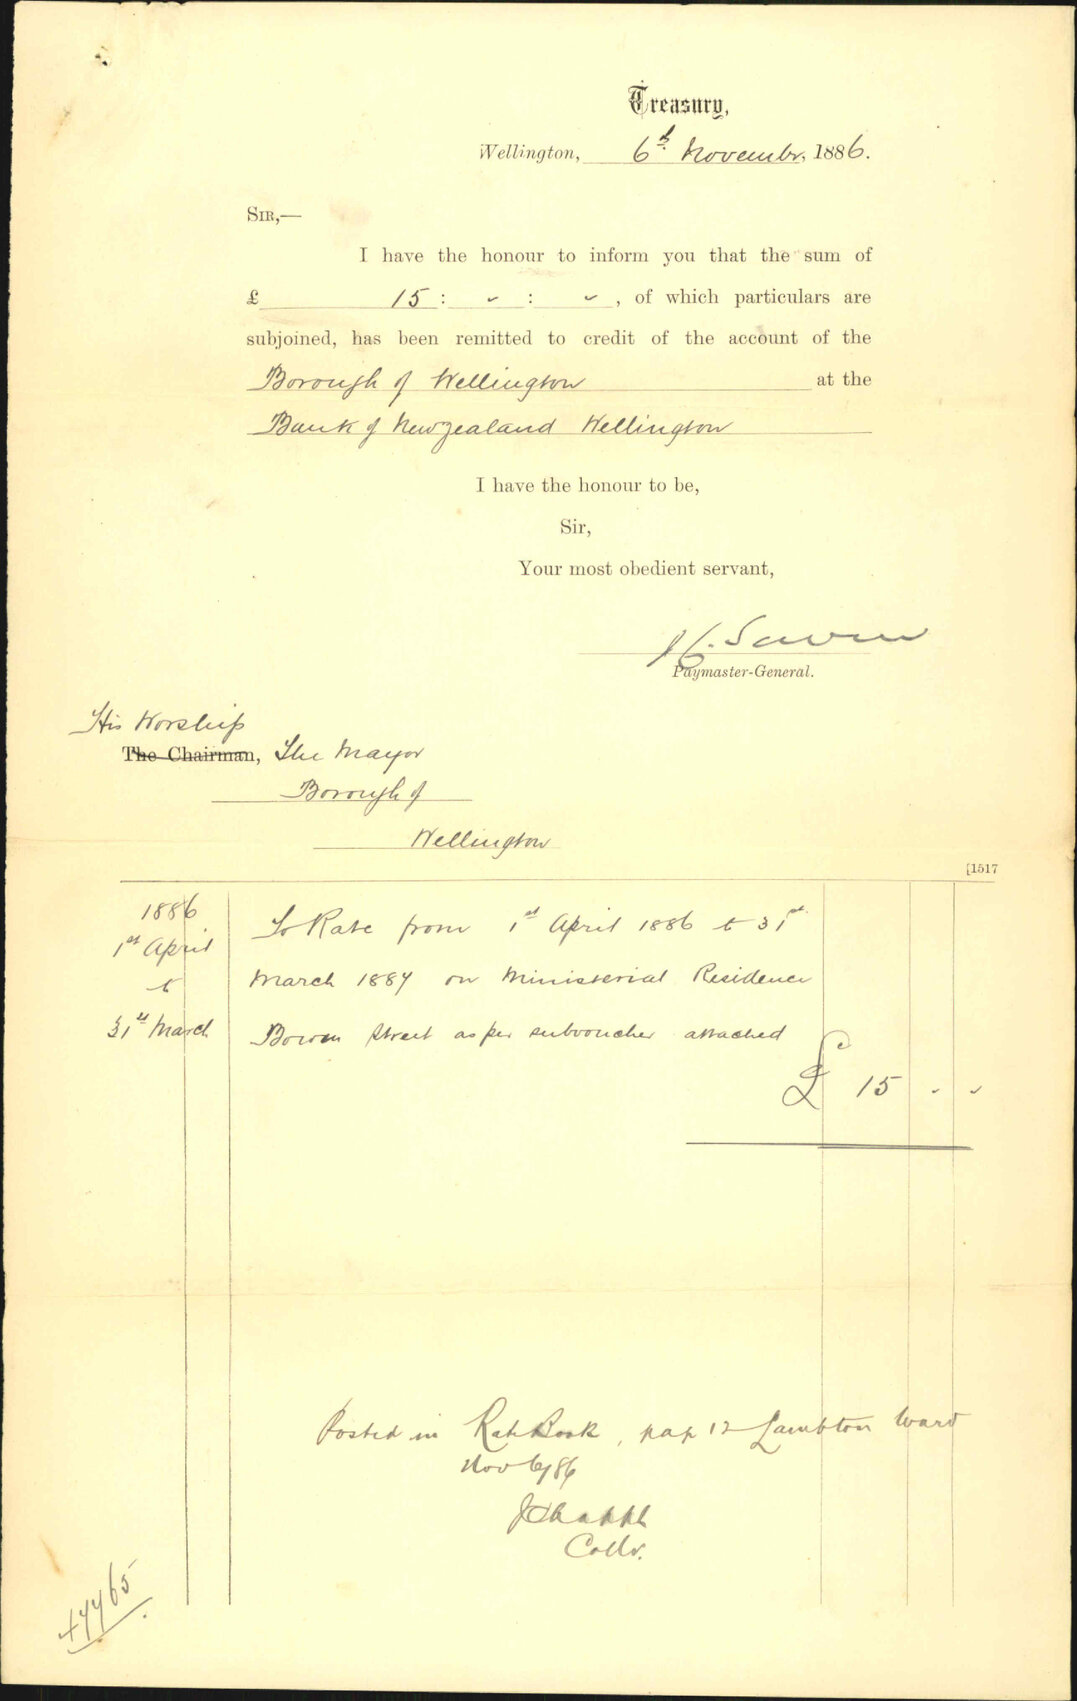 Treasury,
Wellington, 6th November, 1886.
SIR,—
I have the honour to inform you that the sum of
£ 15 : " : " , of which particulars are
subjoined, has been remitted to credit of the account of the
Borough of Wellington at the
Bank of New Zealand Wellington
I have the honour to be,
Sir,
Your most obedient servant,
Paymaster-General.
His Worship
The Chairman, The Mayor
Borough of
Wellington
[1517
1886
1st April
to
31st March
To Rate from 1st April 1886 to 31st
March 1887 on Ministerial Residence
Bowen Street as per subvoucher attached
£ 15 " "
Posted in Rate Book, page 12 Lambton Ward
Nov 6/86
Collr.